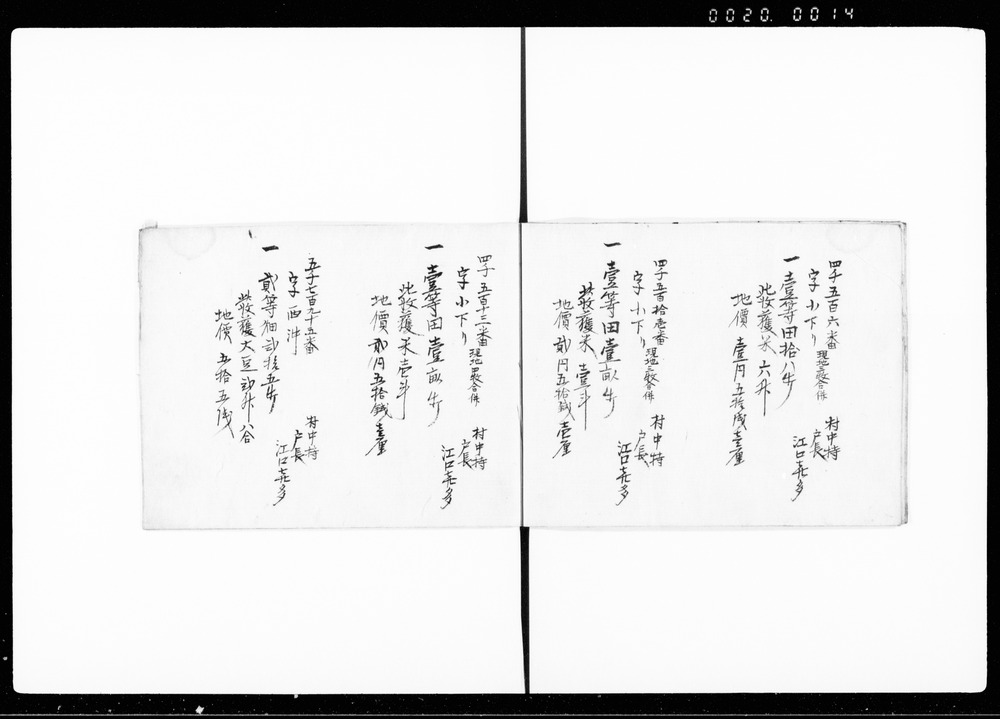 0020. 0014
四千五百六番 現地三教合併
字小下り
一壹等田拾八歩
此收獲米六升
地價壹円五拾銭壹厘
村中持
戸長
江口喜多
四千五百拾壱番 現地三教合併
字小下り
一壹等田壹畝歩
此收獲米壹斗
地價貮円五拾銭壱厘
村中持
戸長
江口喜多
四千五百十三番 現地四教合併
字小下り
一壹等田壹畝歩
此收獲米壱斗
地價貮円五拾銭壹厘
村中持
戸長
江口喜多
五千七百九十五番
字西沖
一貮等畑弐拾五歩
此收獲大豆弐升八合
地價五拾五銭
村中持
戸長
江口喜多